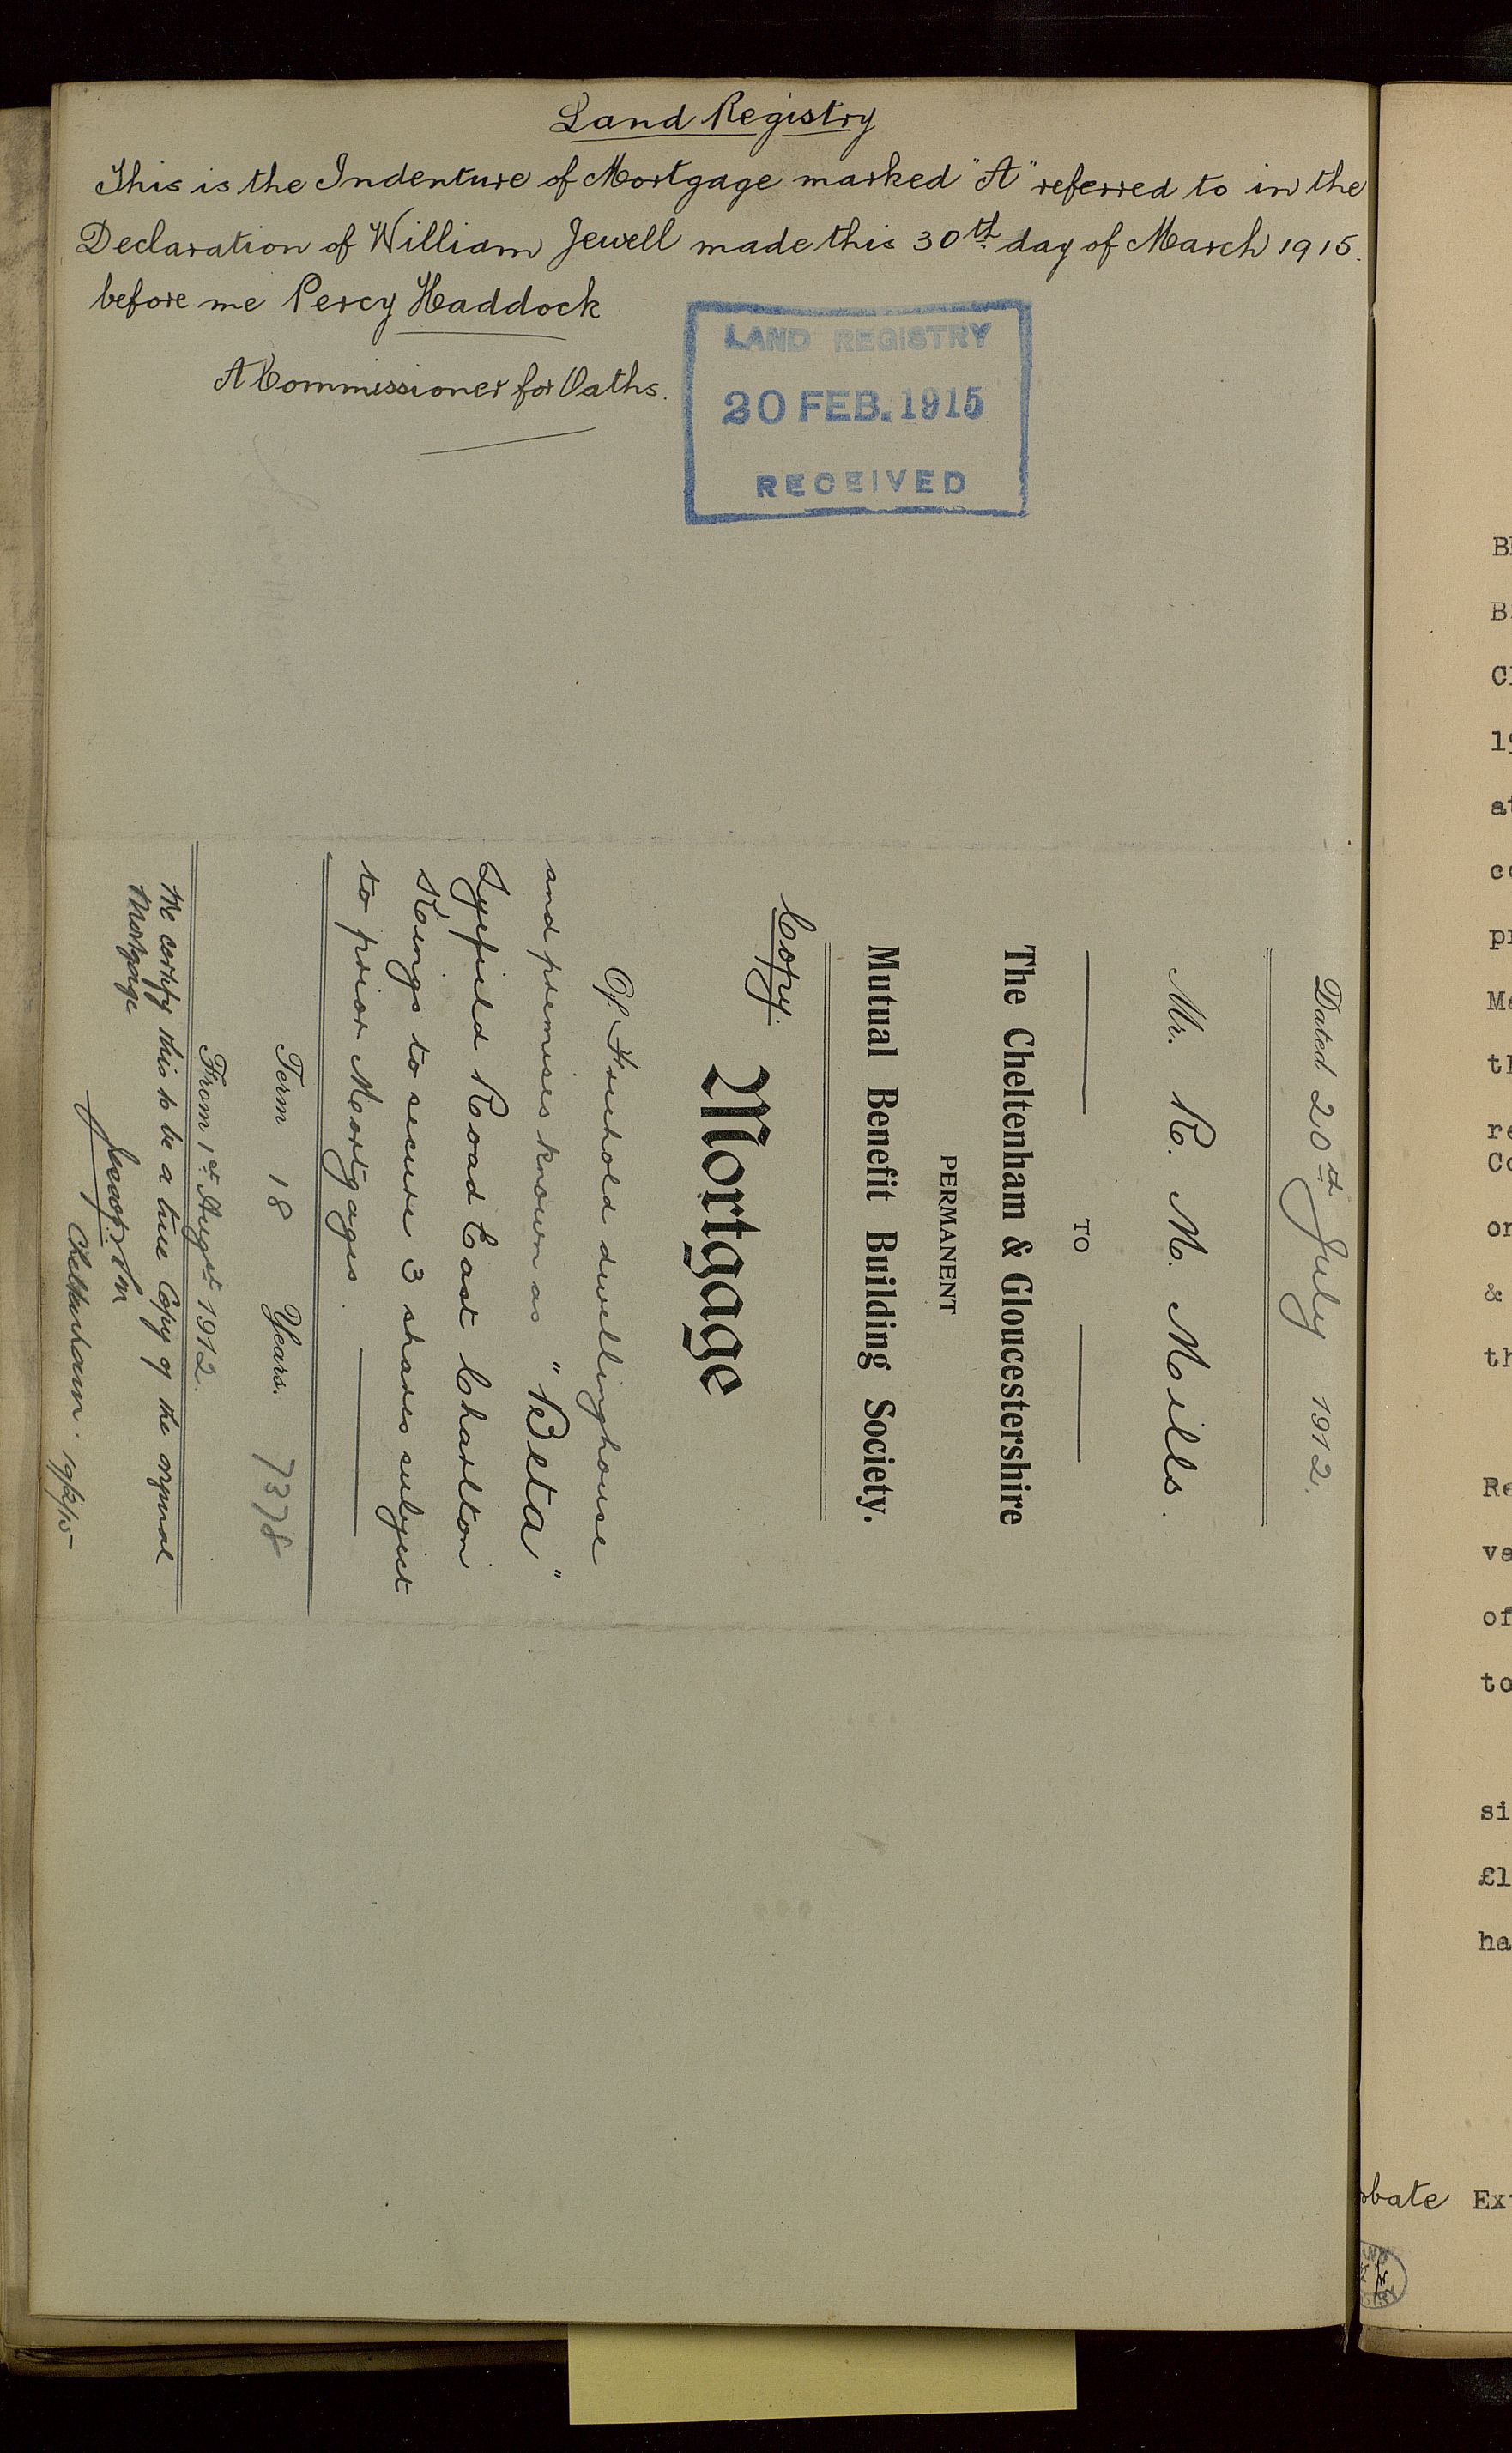 Land Registry
This is the Indenture of Mortgage marked "A" referred to in the
Declaration of William Jewell made this 30th day of March 1915.
before me Percy Haddock
A Commissioner for Oaths.
LAND REGISTRY
20 FEB. 1915
RECEIVED
Dated 20th July 1912.
Mr. R. M. Mills.
TO
The Cheltenham & Gloucestershire
PERMANENT
Mutual Benefit Building Society.
Copy.
Mortgage
Of Freehold dwellinghouse
and premises known as "Beta"
Lyefield Road East Charlton
Kings to secure 3 shares subject
to prior Mortgages.
Term 18 Years. 7378
From 1st Augst 1912.
We certify this to be a true Copy of the original
Mortgage
Cheltenham. 19/2/15
BE
B
C
19
at
co
pr
Ma
th
re
Co
or
&
th
Re
va
of
to
si
£1
ha
obate Ex